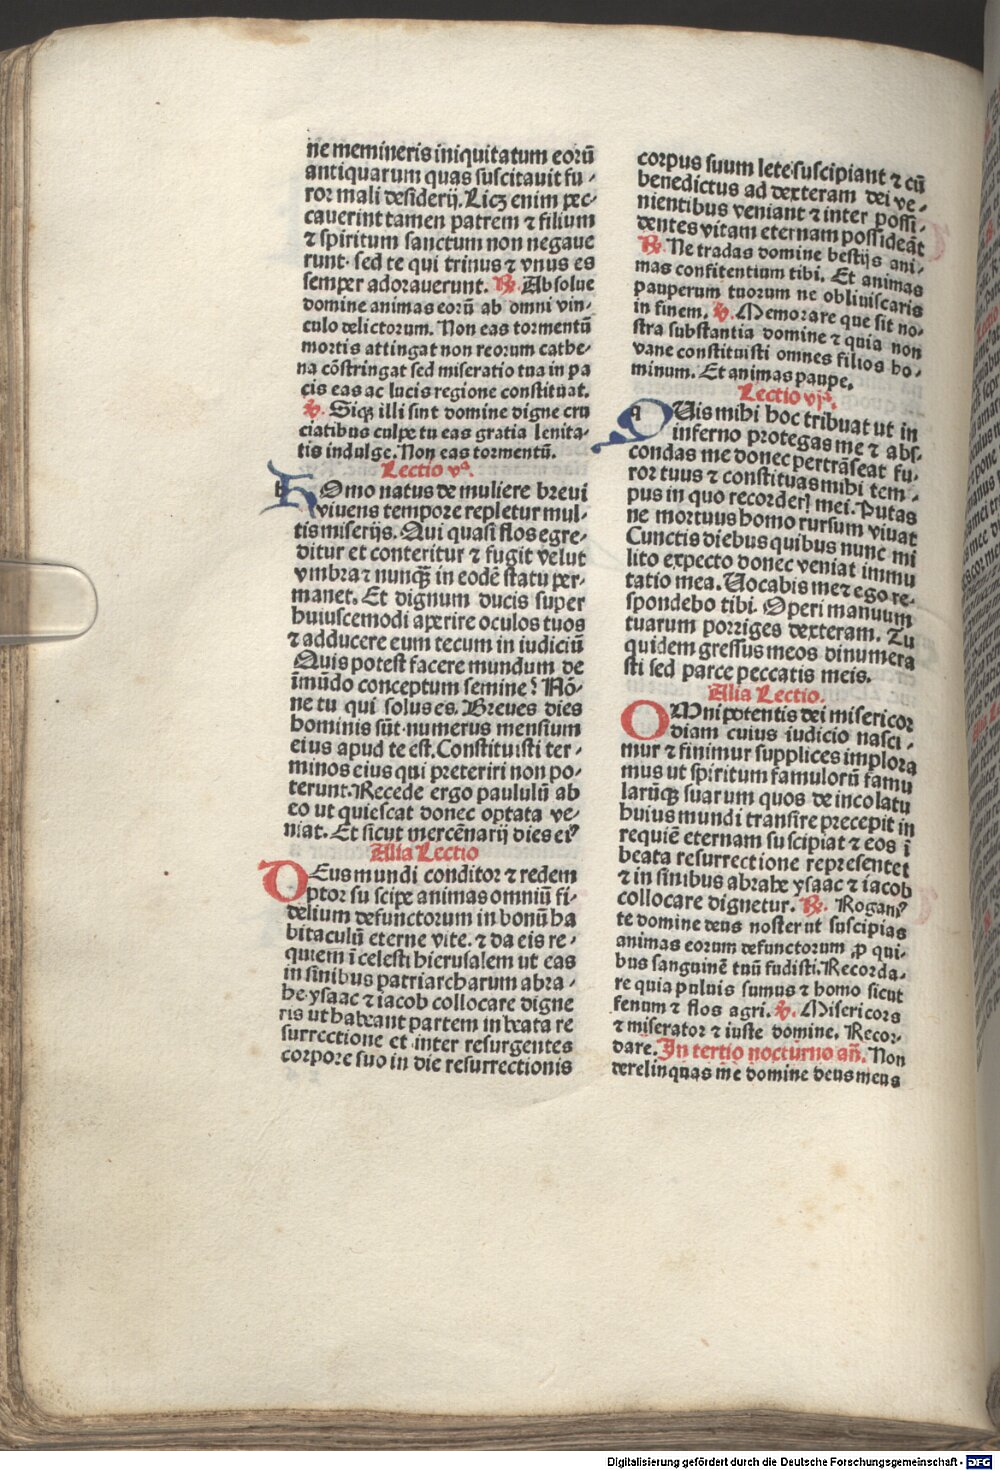 ne memineris iniquitatum eorū
antiquarum quas suscitauit fu-
ror mali desiderij. Licꝫ enim pec-
cauerint tamen patrem ⁊ filium
⁊ spiritum sanctum non negaue
runt· sed te qui trinus ⁊ vnus es
semper adorauerunt. ℟. Absolue
domine animas eorū ab omni vin-
culo delictorum. Non eas tormentū
mortis attingat non reorum cathe-
na cōstringat sed miseratio tua in pa
cis eas ac lucis regione constituat.
℣. Siqꝫ illi sint domine digne cru
ciatibus culpe tu eas gratia lenita-
tis indulge. Non eas tormentū.
Lectio vᵃ.
HOmo natus de muliere breui
viuens tempore repletur mul-
tis miserijs. Qui quasi flos egre-
ditur et conteritur ⁊ fugit velut
vmbra ⁊ nunqꝫ in eodē statu per-
manet. Et dignum ducis super
huiuscemodi aperire oculos tuos
⁊ adducere eum tecum in iudiciū
Quis potest facere mundum de
īmūdo conceptum semine? Nō-
ne tu qui solus es. Breues dies
hominis sūt· numerus mensium
eius apud te est. Constituisti ter-
minos eius qui preteriri non po-
terunt. Recede ergo paululū ab
eo ut quiescat donec optata ve-
niat. Et sicut mercēnarij dies eiꝰ
Alia Lectio
DEus mundi conditor ⁊ redem
ptor suscipe animas omniū fi-
delium defunctorum in bonū ha
bitaculū eterne vite. ⁊ da eis re-
quiem ī celesti hierusalem ut eas
in sinibus patriarcharum abra-
he· ysaac ⁊ iacob collocare digne
ris ut habeant partem in beata re
surrectione et inter resurgentes
corpore suo in die resurrectionis
corpus suum lete suscipiant ⁊ cū
benedictus ad dexteram dei ve-
nientibus veniant ⁊ inter possi-
dentes vitam eternam possideāt
℟. Ne tradas domine bestijs ani-
mas confitentium tibi. Et animas
pauperum tuorum ne obliuiscaris
in finem. ℣. Memorare que sit no-
stra substantia domine ⁊ quia non
vane constituisti omnes filios ho-
minum. Et animas paupe.
Lectio vjᵃ.
QUis mihi hoc tribuat ut in
inferno protegas me ⁊ abs-
condas me donec pertrāseat fu-
ror tuus ⁊ constituas mihi tem-
pus in quo recorderꝭ mei. Putas
ne mortuus homo rursum viuat
Cunctis diebus quibus nunc mi
lito expecto donec veniat immu
tatio mea. Uocabis me ⁊ ego re-
spondebo tibi. Operi manuum
tuarum porriges dexteram. Tu
quidem gressus meos dinumera
sti sed parce peccatis meis.
Alia Lectio.
OMnipotentis dei misericor
diam cuius iudicio nasci-
mur ⁊ finimur supplices implora
mus ut spiritum famulorū famu
larūqꝫ suarum quos de incolatu
huius mundi transire precepit in
requiē eternam suscipiat ⁊ eos ī
beata resurrectione representet
⁊ in sinibus abrahe ysaac ⁊ iacob
collocare dignetur. ℟. Rogamꝰ
te domine deus noster ut suscipias
animas eorum defunctorum ꝓ qui-
bus sanguinē tuū fudisti. Recorda-
re quia puluis sumus ⁊ homo sicut
fenum ⁊ flos agri. ℣. Misericors
⁊ miserator ⁊ iuste domine. Recor-
dare. In tertio nocturno añ. Non
derelinquas me domine deus meus
Digitalisierung gefördert durch die Deutsche Forschungsgemeinschaft - DFG